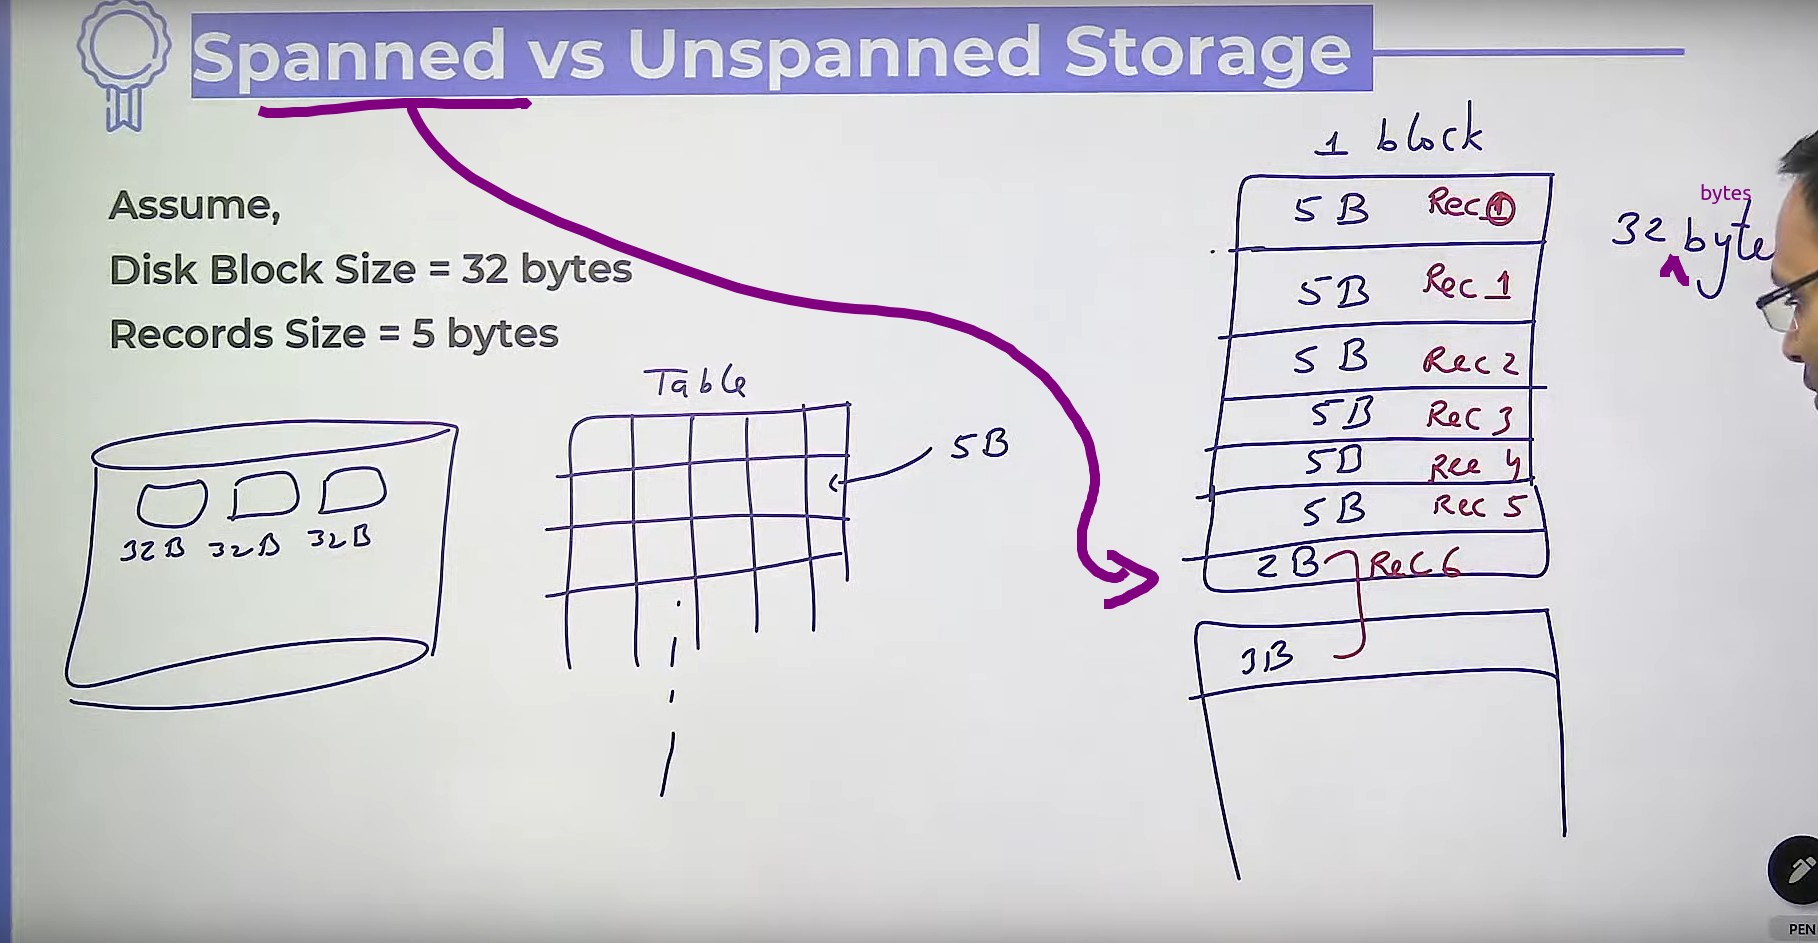 Spanned vs Unspanned Storage
Assume,
Disk Block Size = 32 bytes
Records Size = 5 bytes
32B 32B 32B
Table
5B
1 block
5B Rec 1
5B Rec 1
5B Rec 2
5B Rec 3
5B Rec 4
5B Rec 5
2B Rec 6
3B
bytes
32 byte
PEN